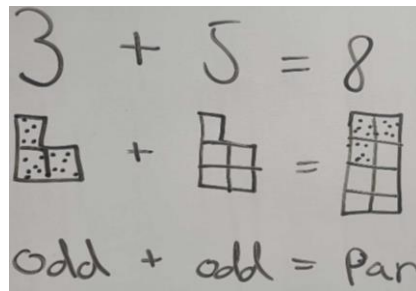 3 + 5 = 8
+ =
odd + odd = par